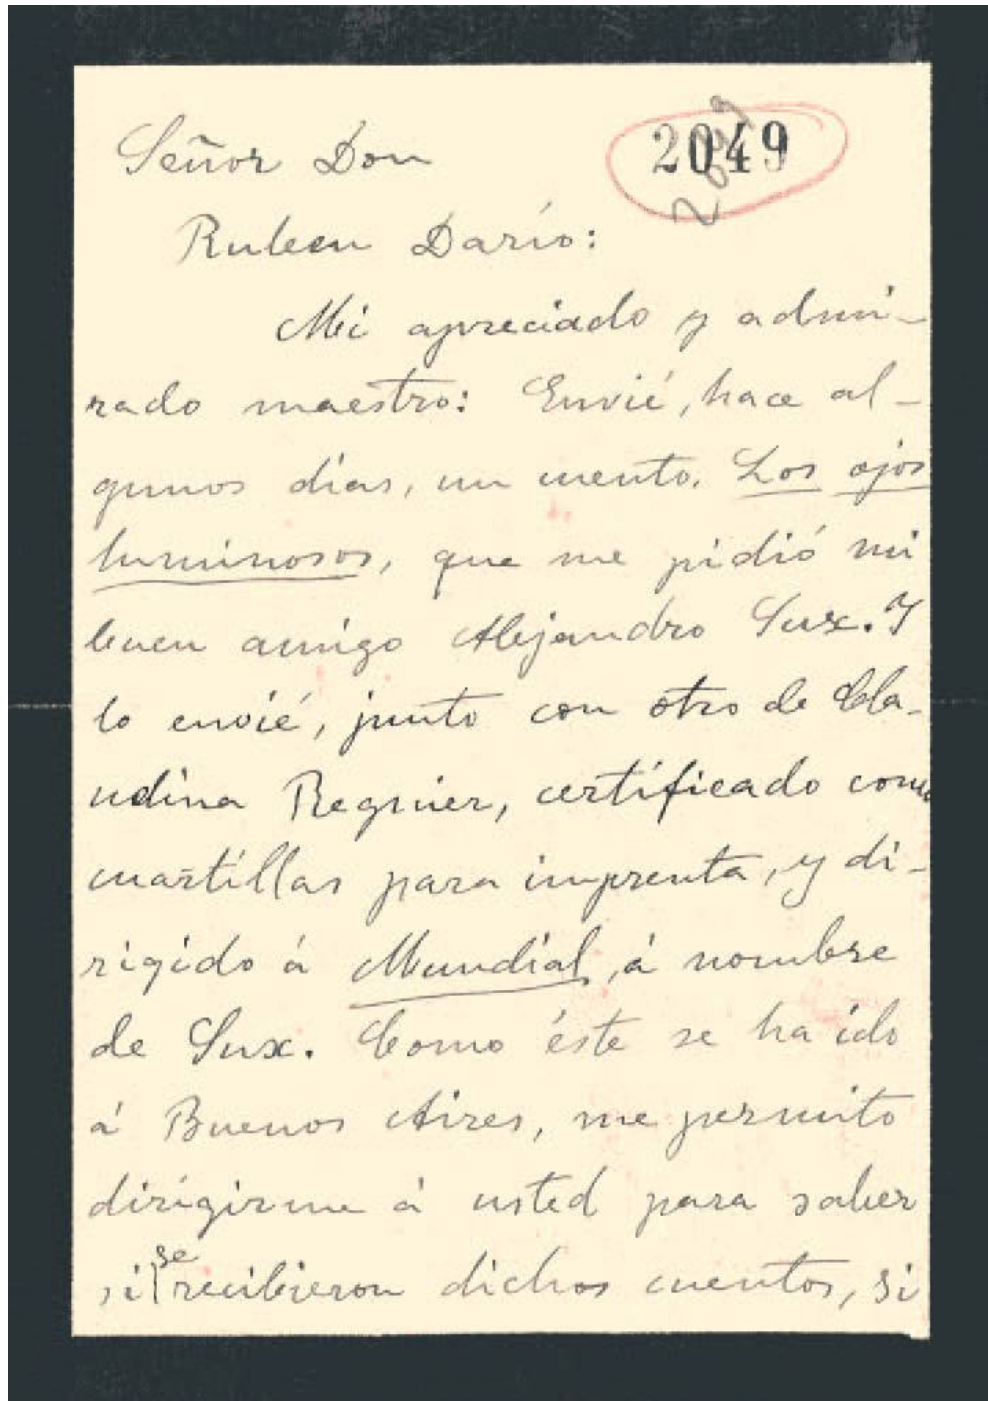 Señor Don
2049
2049
Ruben Darío:
Mi apreciado y admi-
rado maestro: Envié, hace al-
gunos días, un cuento. Los ojos
luminosos, que me pidió mi
buen amigo Alejandro Sux. Y
lo envié, junto con otro de Cla-
udina Regnier, certificado como
cuartillas para imprenta, y di-
rigido á Mundial, á nombre
de Sux. Como éste se ha ido
á Buenos Aires, me permito
dirigirme á usted para saber
si se recibieron dichos cuentos, si